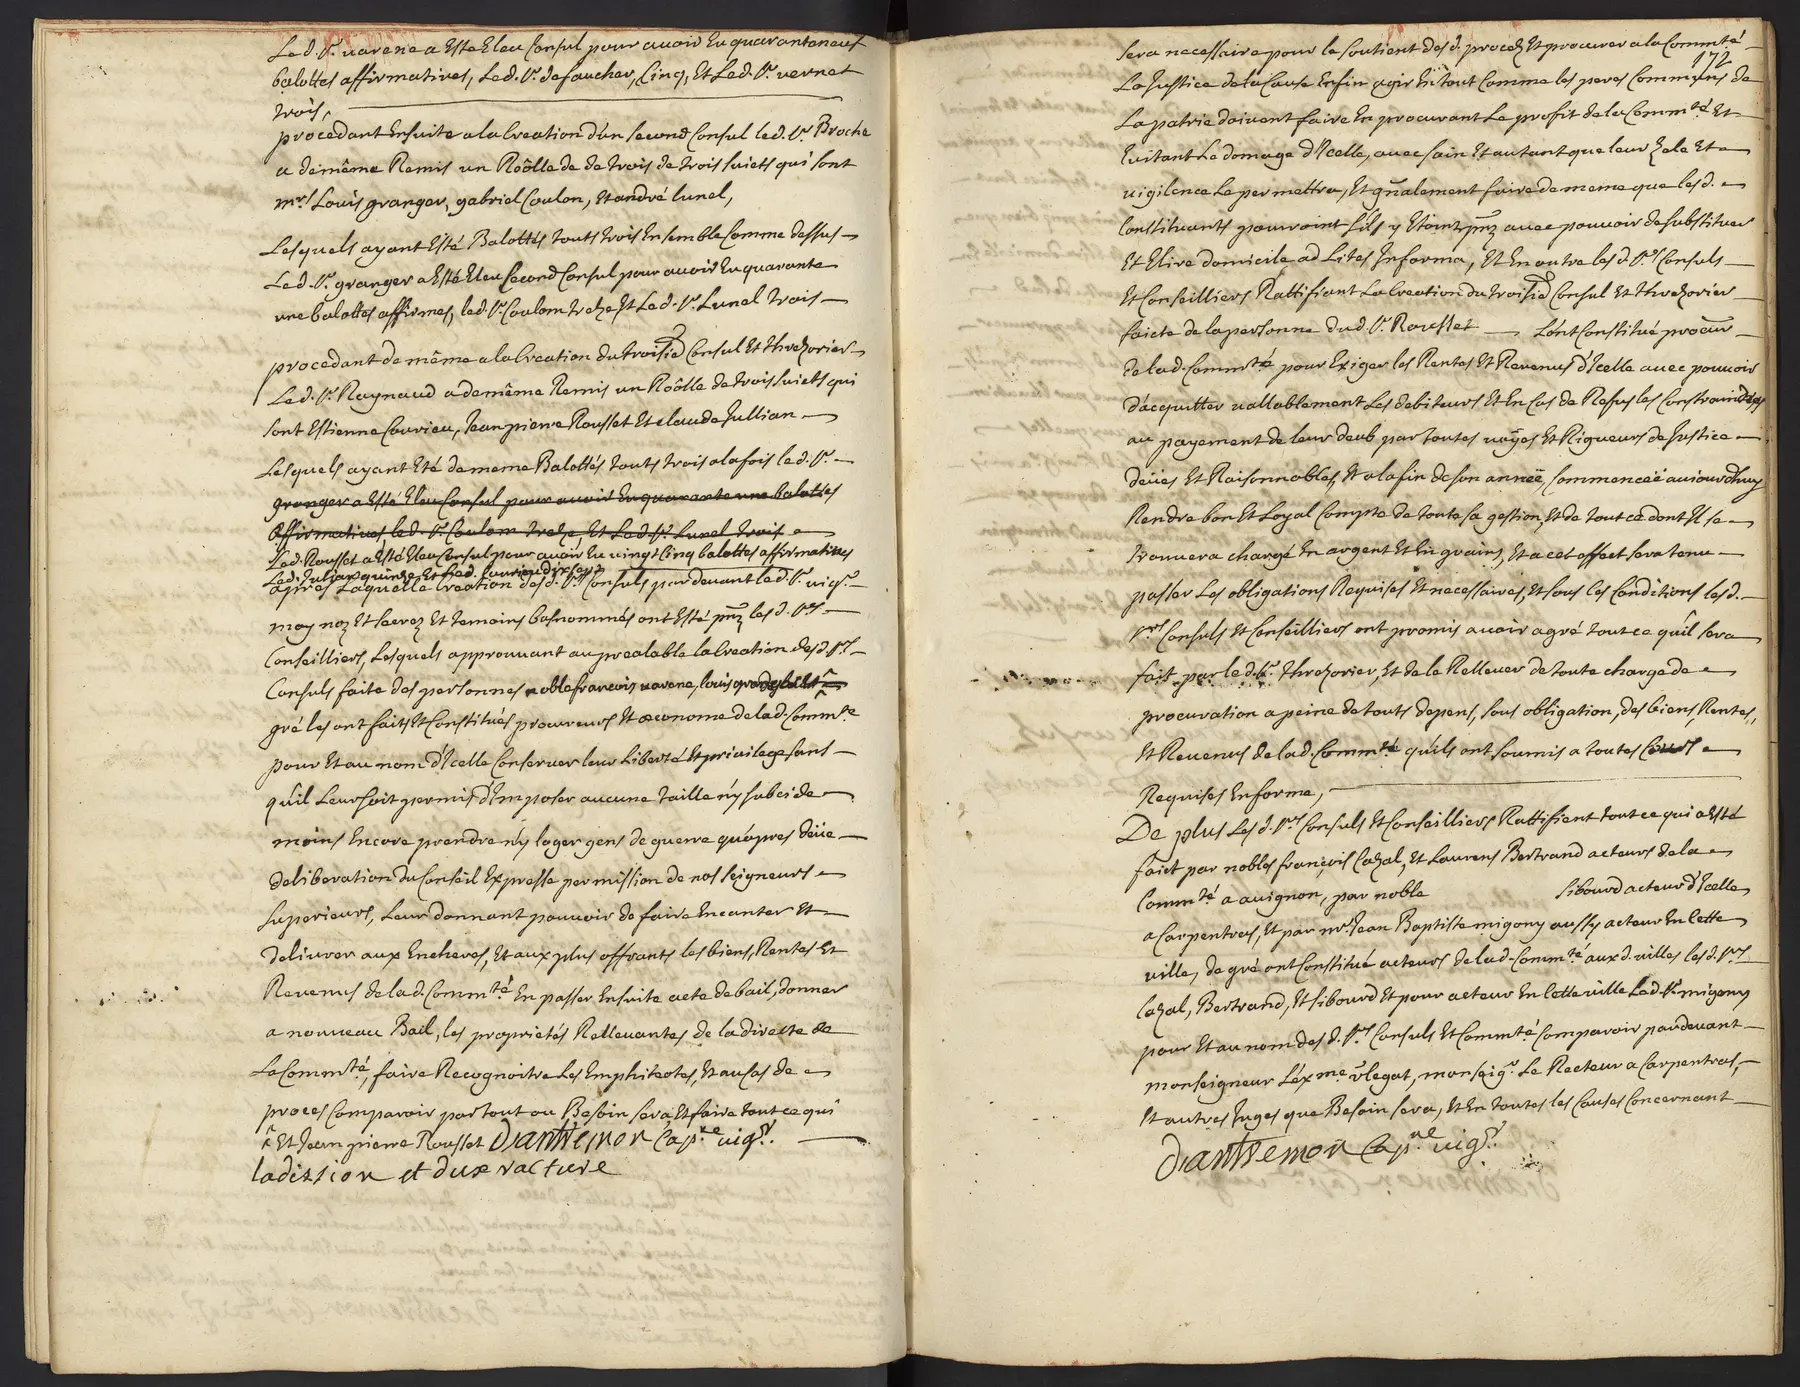 Led. Sr. varene a Esté Eleu Consul pour avoir Eu quaranteneuf
balottes affirmatives, Led. Sr. defaucher, Cinq, Et Led. Sr. vernet
trois,
procedant Ensuite a la Creation d'un second Consul led. Sr. Broche
a demême Remis un Roôlle de de trois de trois suiets qui sont
mrs. Louis granger, gabriel Coulon, Et andré lunel,
Lesquels ayant Esté Balottés touts trois Ensemble Comme dessus
Led. Sr. granger a Esté Eleu second Consul pour avoir Eu quarante
une balottes affirmes, led. Sr. Coulom treze Et Led. Sr. Lunel trois
procedant de même a la Creation du troisie Consul Et thrézorier
Led. Sr. Raynaud a demême Remis un Roôlle de trois suiets qui
sont Estienne Couvieu, Jean pierre Rousset Et claude Jullian
Lesquels ayant Eté de meme Balottés touts trois a la fois led. Sr.
granger a Esté Eleu Consul pour avoir Eu quarante une balottes
affirmatives led. Sr. Coulom treze, Et Led. Sr. Lunel trois
Led. Rousset a Esté Eleu Consul pour avoir Eu vingt Cinq balottes affirmatives
Led. Julian quinze Et Led. Couvieu dix sept
apres Laquelle Creation desd. Srs. Consuls pardevant led. Sr. vigr.
moy nore Et secrez Et temoins bas nommés ont Esté pntz les d. Srs.
Conseilliers, Lesquels approuvant au prealable la Creation des d. Srs.
Consuls faite des personnes noble françois varene, louis granger
gré les ont faits Et Constitués procureurs Et œconome de lad. Commte
pour Et au nom d'Icelle Conserver leur Liberté Et privilege sans
qu'il Leur soit permis d'Imposer aucune taille n'y subcide
moins Encore prendre n'y loger gens de guerre qu'apres deüe
deliberation du Conseil Expresse permission de nos seigneurs
superieurs, Leur donnant pouvoir de faire Encanter Et
delivrer aux Encheres, Et aux plus offrants les biens, Rentes Et
Revenus de lad. Commté. En passer Ensuite acte de bail, donner
a nouveau Bail, les proprietés Rellevantes de la directe de
La Commté, faire Recognoitre Les Emphiteotes, Et au Cas de
proces Comparoir par tout ou Besoin sera, Et faire tout ce qui
Et Jean pierre Rousset Dantremon Capne. vigr.
ladission et dux racture
172
sera necessaire pour le soutient des d. procez Et procurer a la Commté
La Justice de la Cause Enfin agir En tout Comme les peres Communs de
La patrie doivent faire En procurant Le profit de la Commté Et
Evitant Le domage d'Icelle, avec soin Et autant que leur zele Et
vigilence Le permettra, Et gñalement faire de meme que les d.
Constituants pourroint s'ils y Etoint pntz avec pouvoir de substituer
Et Elire domicile ad Lites In forma, Et En outre les d. Srs. Consuls
Et Conseilliers Rattifiant La Creation du troisie Consul Et thrézorier
faicte de la personne dud. Sr. Rousset L'ont Constitué procur
de lad. Commté pour Exiger les Rentes Et Revenus d'Icelle avec pouvoir
d'acquitter vallablement Les debiteurs Et En Cas de Refus les Constraindres
au payement de leur deub par toutes voÿes Et Rigueurs de Justice
deües Et Raisonnables, Et a la fin de son anneë, Commenceë auiourdhuy
Rendre bon Et Loyal Compte de toute sa gestion, Et de tout ce dont Il se
trouvera chargé En argent Et En grains, Et a cet effect sera tenu
passer Les obligations Requises Et necessaires, Et sous les Conditions les d.
Srs Consuls Et Conseilliers ont promis avoir agré tout ce qu'il sera
fait par led. Sr. thrézorier, Et de le Relleuer de toute charge de
procuration a peine de touts depens, sous obligation, des biens, Rentes,
Et Revenus de lad. Commté qu'ils ont soumis a toutes Cours
Requises En forme,
De plus Les d. Srs Consuls Et Conseilliers Rattifient tout ce qui a Esté
faict par nobles françois Cazal, Et Laurens Bertrand acteurs de la
Commté a avignon, par noble sibourd acteur d'Icelle
a Carpentras, Et par mr. Jean Baptiste migony aussy acteur En cette
ville, de gré ont Constitué acteurs de lad. Commté aux d. villes les d. Srs
Cazal, Bertrand, Et sibourd Et pour acteur En cette ville Led. Sr. migony
pour Et au nom des d. Srs. Consuls Et Commté Comparoir pardevant
monseigneur L'exme. vlegat, monsigr. Le Recteur a Carpentras,
Et autres Juges que Besoin sera, Et En toutes les Causes Concernant
Dantremon Capne vigr.